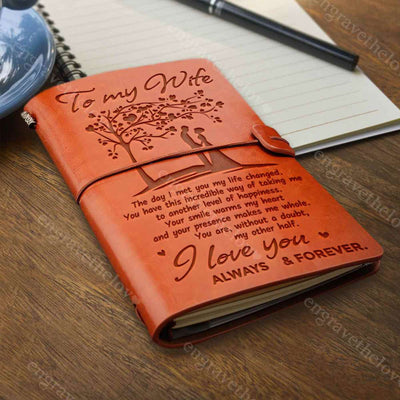 To my Wife
The day I met you my life changed.
You have this incredible way of taking me
to another level of happiness.
Your smile warms my heart
and your presence makes me whole.
You are, without a doubt,
my other half.
I love You
ALWAYS & FOREVER.
engravethelove